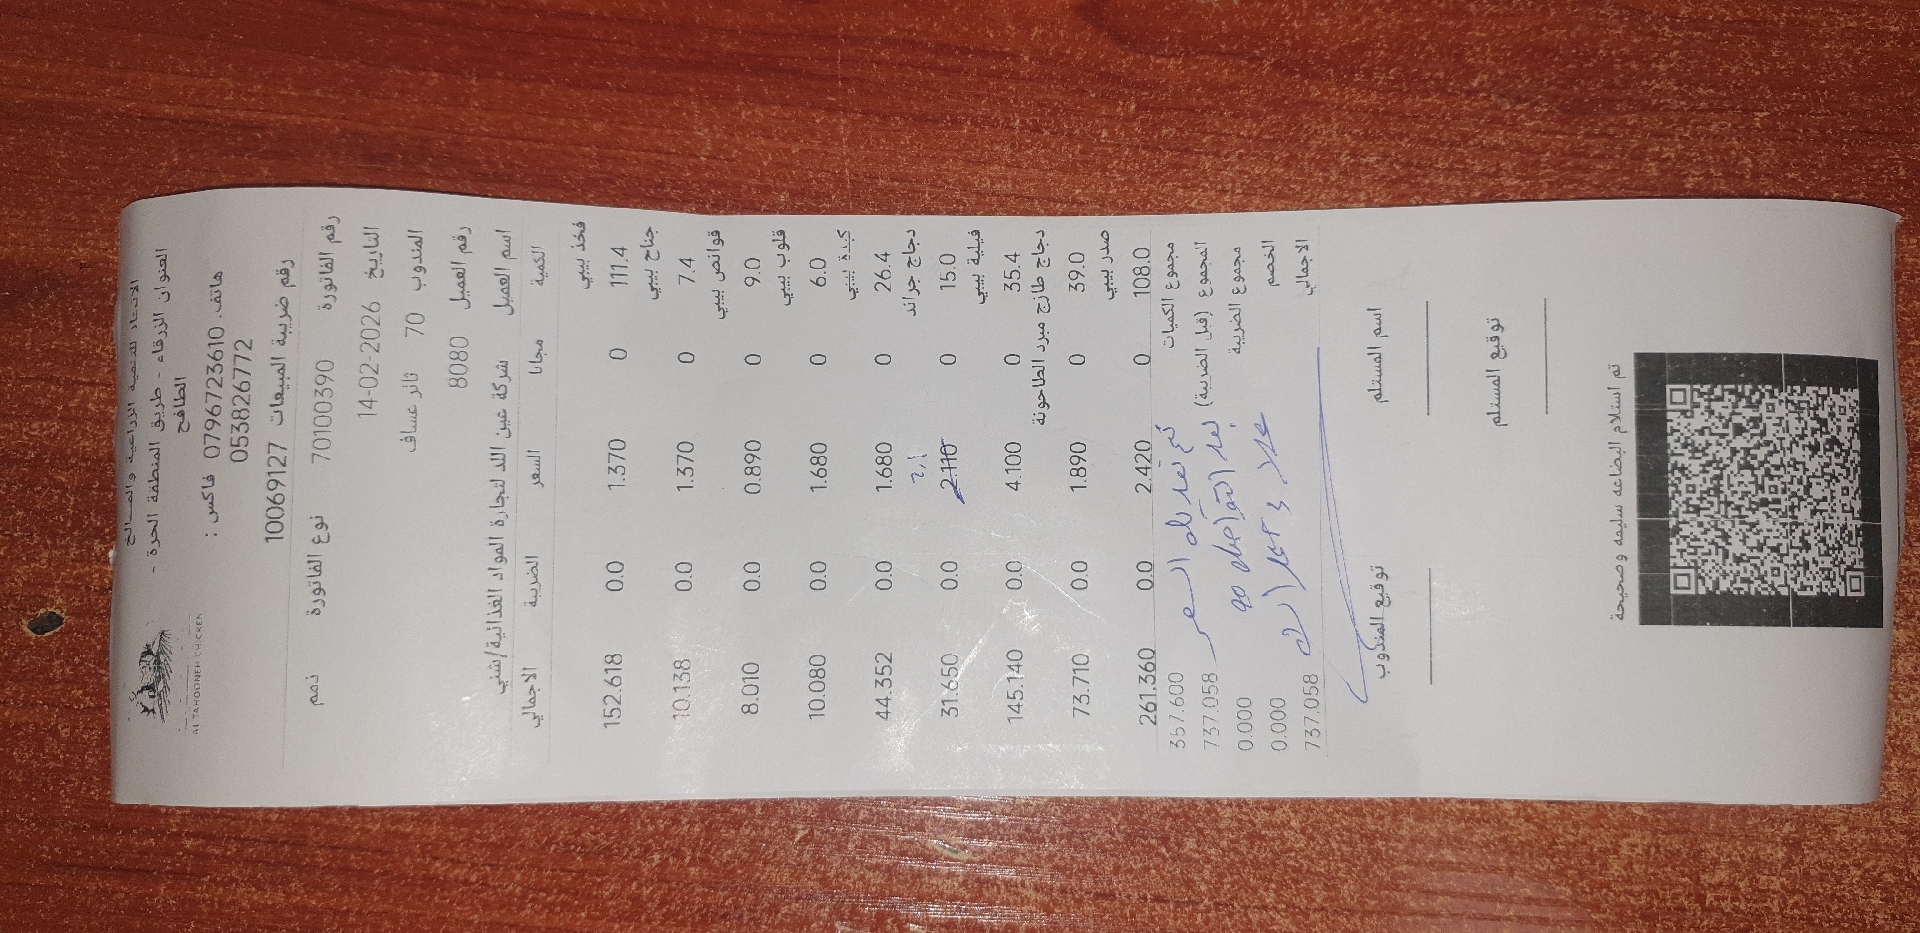 AL TAHOONEH CHICKEN
الاتحاد للتنمية الزراعية والمسالخ
العنوان الزرقاء - طريق المنطقة الحرة -
الطافح
هاتف. 0796723610 فاكس :
053826772
رقم ضريبة المبيعات 10069127
رقم الفاتورة 70100390 نوع الفاتورة ذمم
التاريخ 14-02-2026
المندوب 70 ثائر عساف
رقم العميل 8080
اسم العميل شركة عين اللد لتجارة المواد الغذائية/شني
الكمية مجانا السعر الضريبة الاجمالي
فخذ بيبي
111.4 0 1.370 0.0 152.618
جناح بيبي
7.4 0 1.370 0.0 10.138
قوانص بيبي
9.0 0 0.890 0.0 8.010
قلوب بيبي
6.0 0 1.680 0.0 10.080
كبدة بيبي
26.4 0 1.680 0.0 44.352
دجاج جراند
15.0 0 2.110 0.0 31.650
فيلية بيبي
35.4 0 4.100 0.0 145.140
دجاج طازج مبرد الطاحونة
39.0 0 1.890 0.0 73.710
صدر بيبي
108.0 0 2.420 0.0 261.360
مجموع الكميات 357.600
المجموع (قبل الضريبة) 737.058
مجموع الضريبة 0.000
الخصم 0.000
الاجمالي 737.058
تم تعديل السعر
بعد التواصل مع
اسم المستلم توقيع المندوب
توقيع المستلم
تم استلام البضاعه سليمه وصحيحة